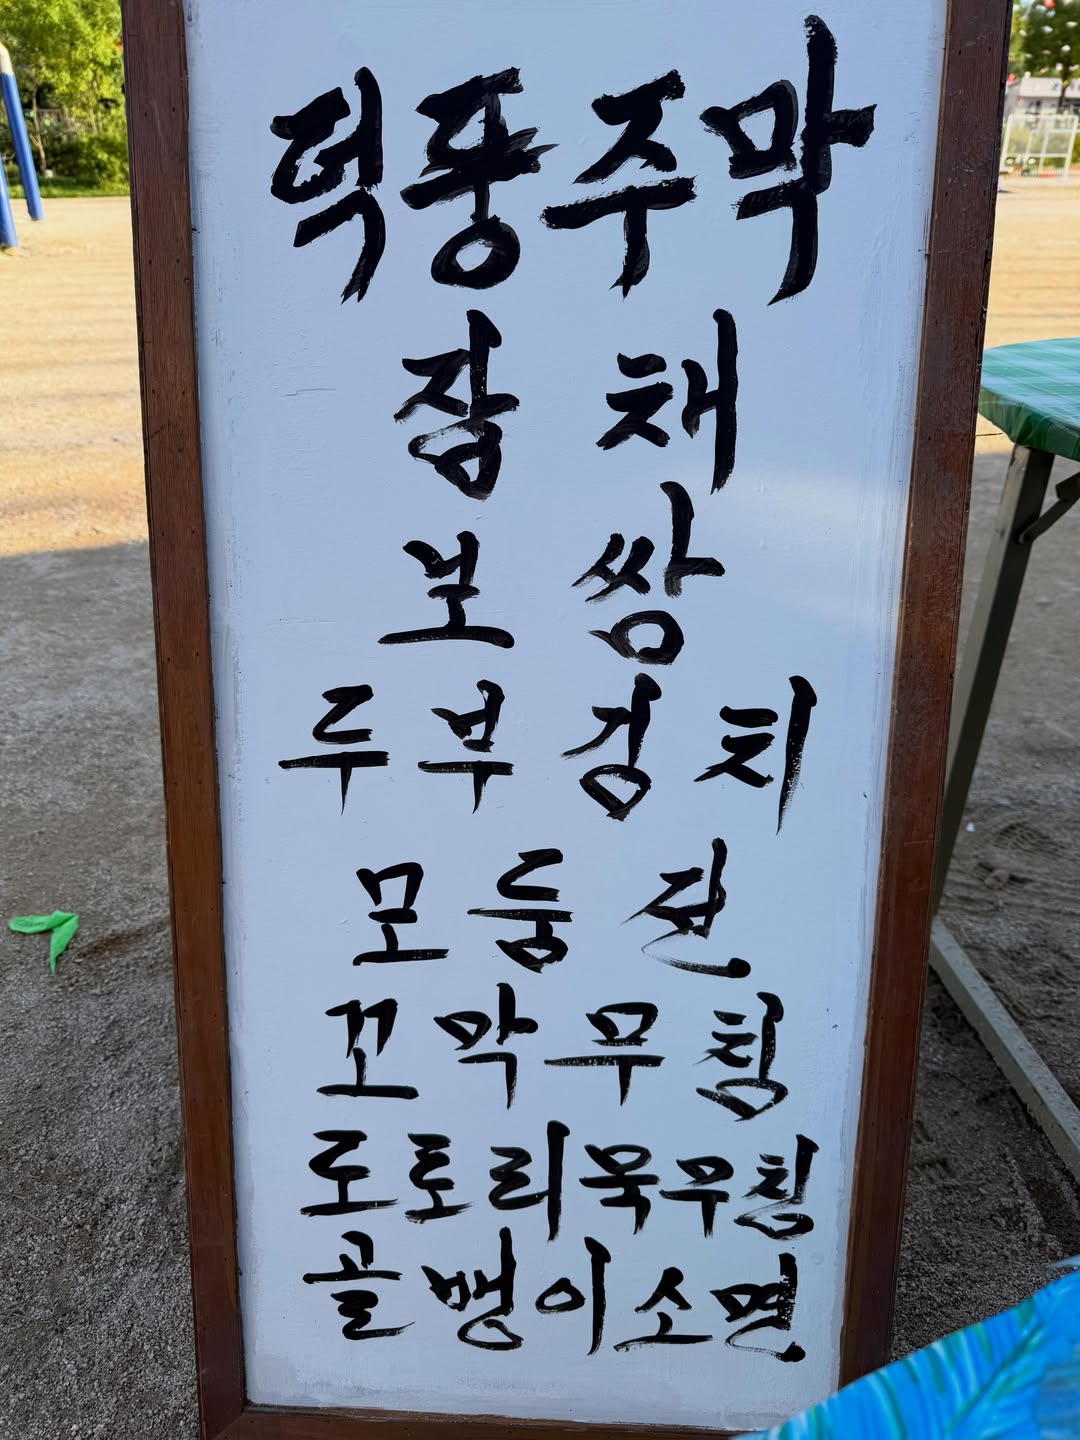 덕풍주막
잡 채
보 쌈
두부 김치
모둠전
꼬막무침
도토리묵무침
골뱅이소면